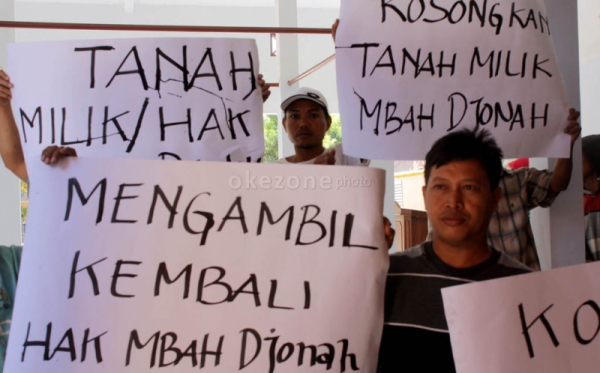 TANAH
MILIK/HAK
KOSONGKAN
TANAH MILIK
MBAH DJONAH
MENGAMBIL
KEMBALI
HAK MBAH Djonah
KO
okezone photo